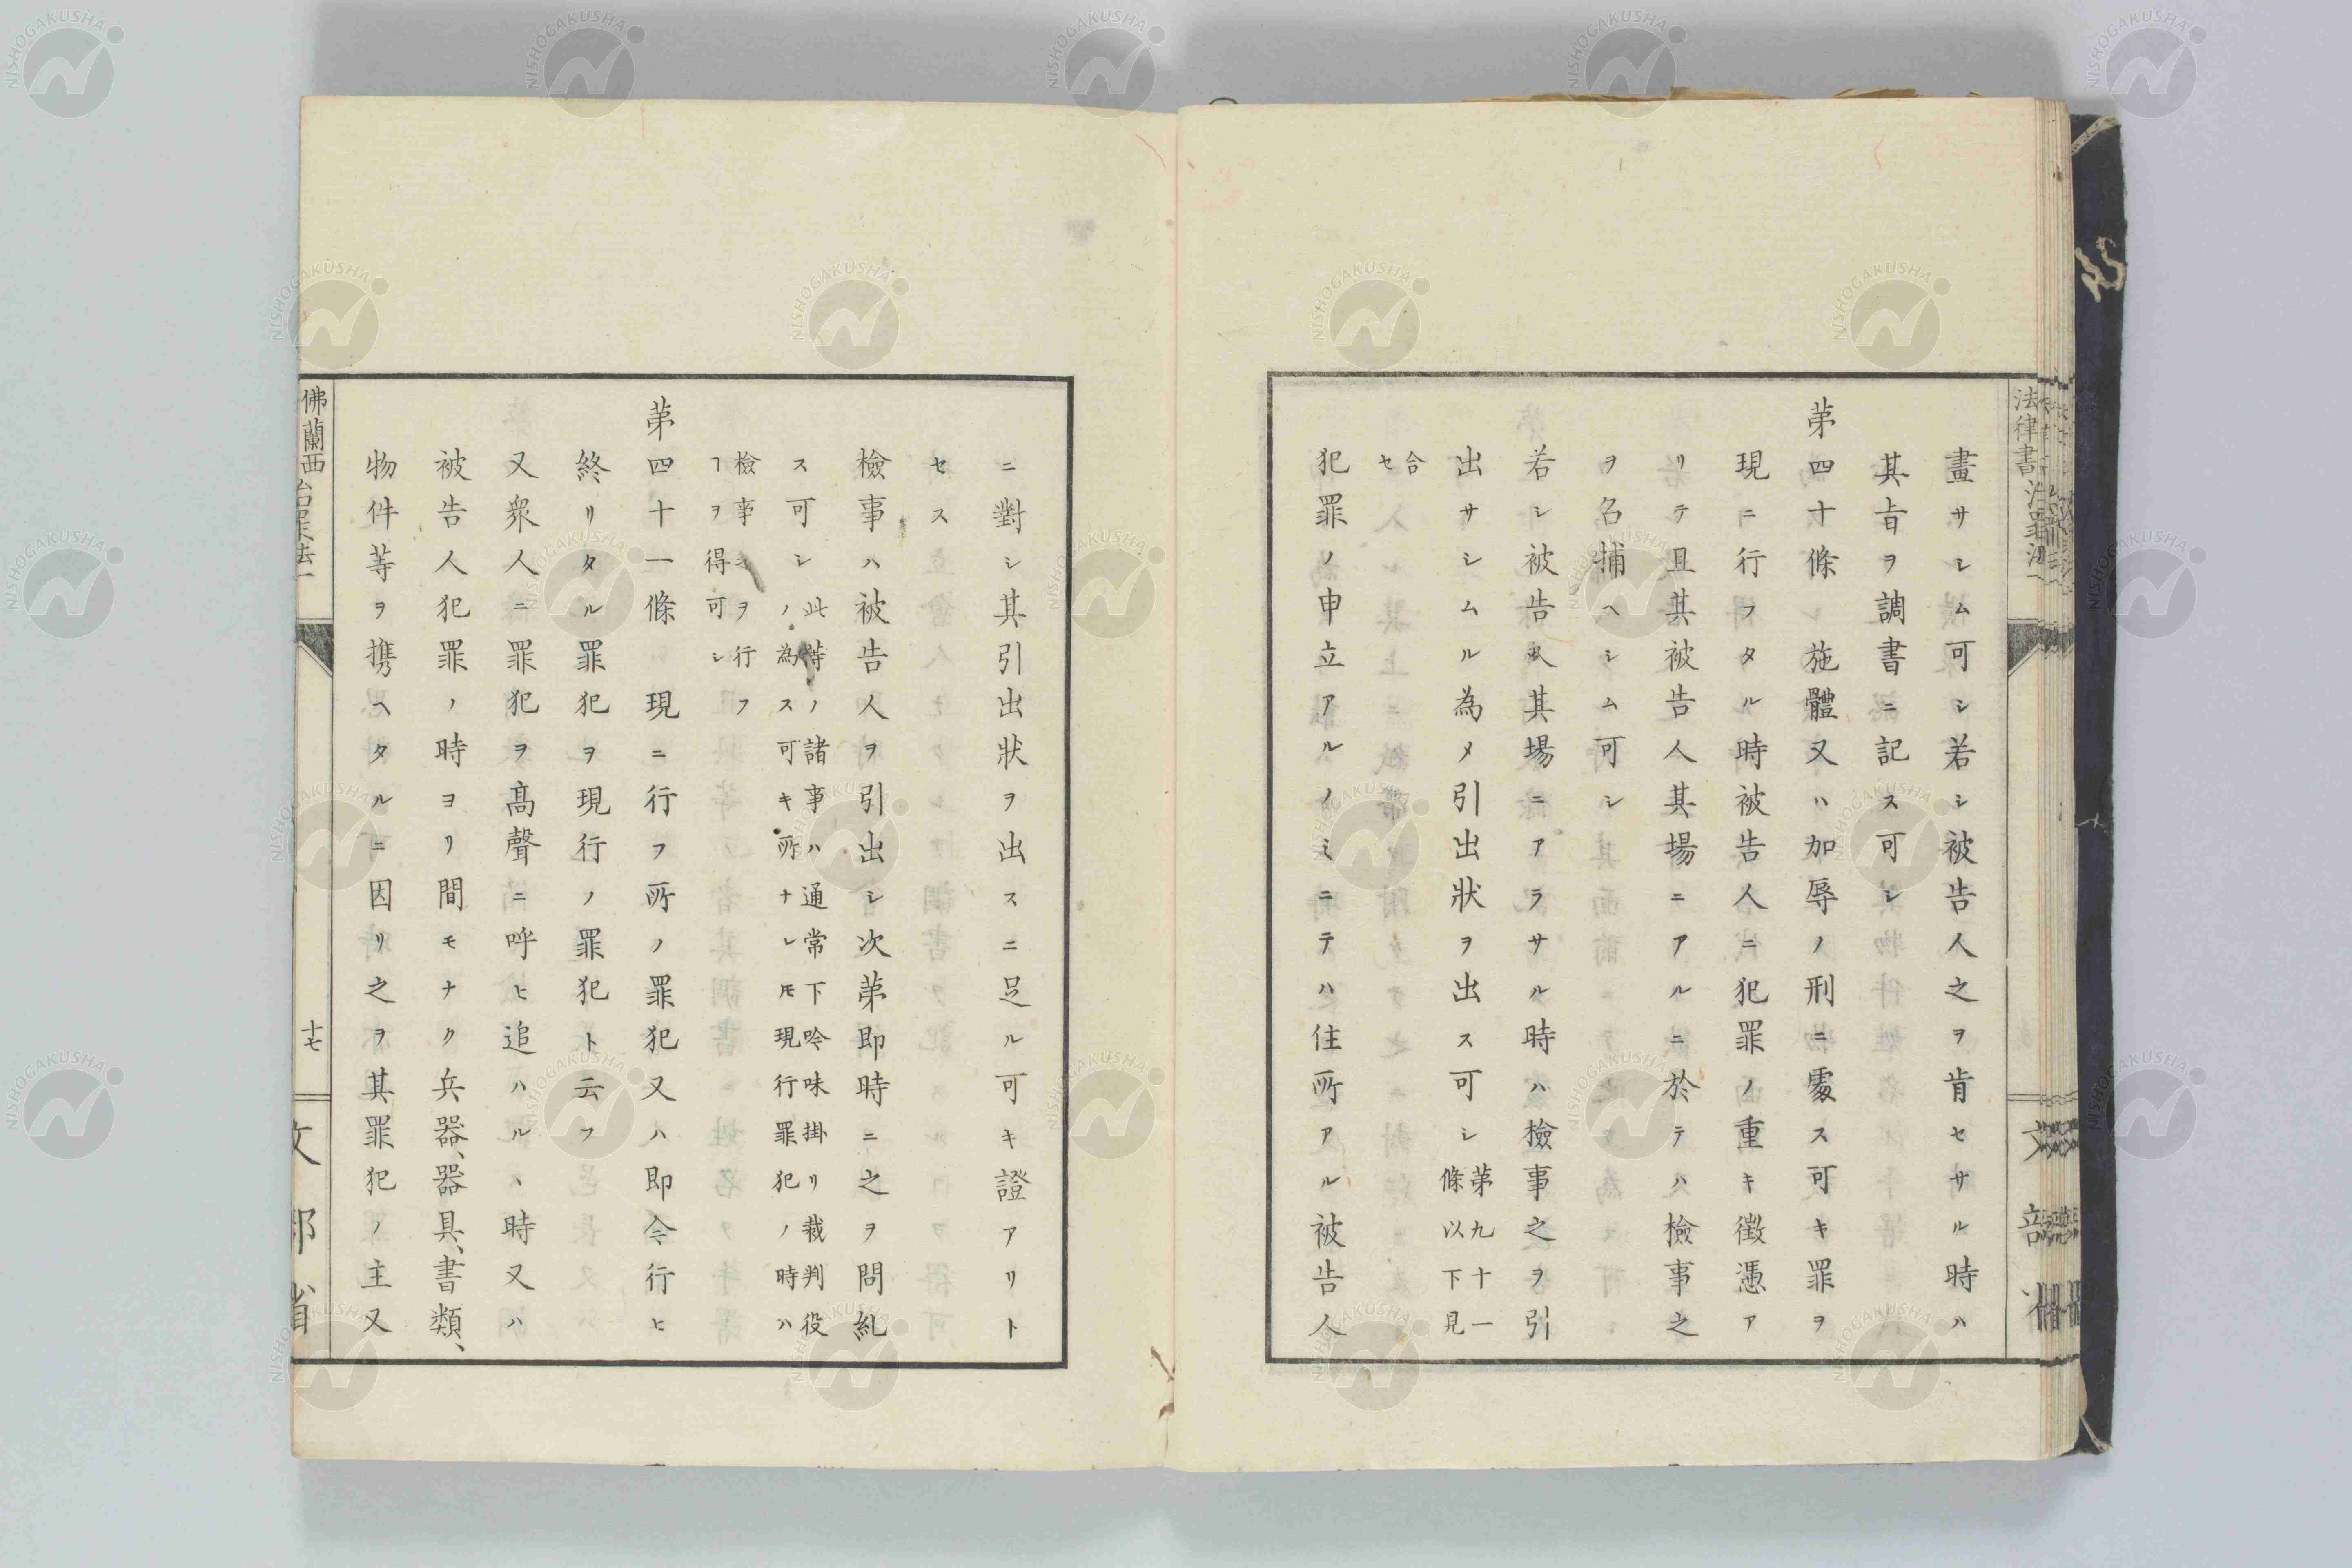 畫サシム可シ若シ被告人之ヲ肯セサル時ハ
其旨ヲ調書ニ記ス可シ
第四十條 施體又ハ加辱ノ刑ニ處ス可キ罪ヲ
現ニ行フタル時被告人ニ犯罪ノ重キ徴憑ア
リテ且其被告人其場ニアルニ於テハ檢事之
ヲ名捕ヘシム可シ
若シ被告人其場ニアラサル時ハ檢事之ヲ引
出サシムル為メ引出狀ヲ出ス可シ第九十一條以下見
合セ
犯罪ノ申立アルノミニテハ住所アル被告人
ニ對シ其引出狀ヲ出スニ足ル可キ證アリト
セス
檢事ハ被告人ヲ引出シ次第即時ニ之ヲ問糺
ス可シ此等ノ諸事ハ通常下吟味掛リ裁判役ノ為ス可キ所ナレ𪜈現行罪犯ノ時ハ
檢事之ヲ行フヿヲ得可シ
第四十一條 現ニ行フ所ノ罪犯又ハ即今行ヒ
終リタル罪犯ヲ現行ノ罪犯ト云フ
又衆人ニ罪犯ヲ高聲ニ呼ヒ追ハルヽ時又ハ
被告人犯罪ノ時ヨリ間モナク兵器、器具、書類、
物件等ヲ携ヘタルニ因リ之ヲ其罪犯ノ主又
佛蘭西
十七
文部省